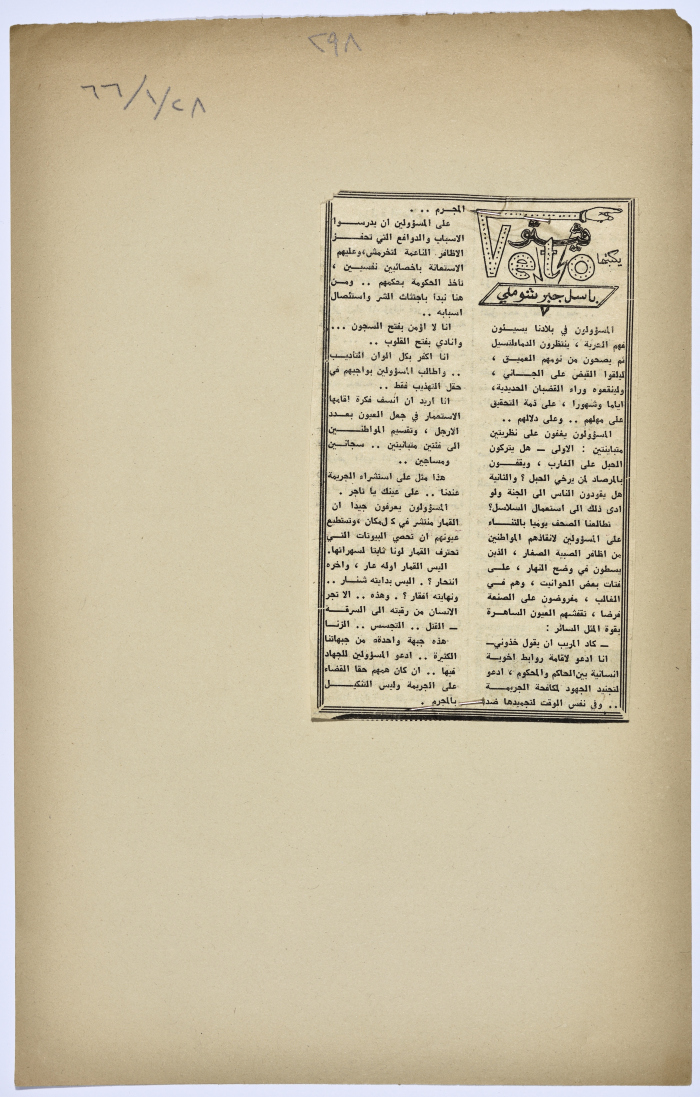 ٢٩٨
٦٦/١/٢٨
فيتو
Veto
يكتبها
باسل جبر شوملي
المسؤولون في بلادنا يسيئون
فهم الحرية ، ينتظرون الدماء لتسيل
ثم يصحون من نومهم العميق ،
ليلقوا القبض على الجاني ،
وليضعوه وراء القضبان الحديدية،
اياما وشهورا ، على ذمة التحقيق
على مهلهم .. وعلى دلالهم ..
المسؤولون يقفون على نظريتين
متباينتين : الاولى ــ هل يتركون
الحبل على الغارب ، ويقفون
بالمرصاد لمن يرخي الحبل ؟ والثانية
هل يقودون الناس الى الجنة ولو
ادى ذلك الى استعمال السلاسل؟
تطالعنا الصحف يوميا بالثناء
على المسؤولين لانقاذهم المواطنين
من اظافر الصبية الصغار ، الذين
يسطون في وضح النهار ، على
فتات بعض الحوانيت ، وهم في
الغالب ، مفروضون على الصنعة
فرضا ، تقفشهم العيون الساهرة
بقوة المثل السائر :
ــ كاد المريب ان يقول خذوني ــ
انا ادعو لاقامة روابط اخوية
انسانية بين الحاكم والمحكوم ، ادعو
لتجنيد الجهود لمكافحة الجريمة
.. وفي نفس الوقت لتجميدها ضد
المجرم ...
على المسؤولين ان يدرسوا
الاسباب والدوافع التي تحفز
الاظافر الناعمة لتخرمش، وعليهم
الاستعانة باخصائيين نفسيين ،
تاخذ الحكومة بحكمهم .. ومن
هنا نبدأ باجتثاث الشر واستئصال
اسبابه ..
انا لا اؤمن بفتح السجون ...
وانادي بفتح القلوب ..
انا اكفر بكل الوان التاديب
.. واطالب المسؤولين بواجبهم في
حقل التهذيب فقط ..
انا اريد ان انسف فكرة اقامها
الاستعمار في جعل العيون بعدد
الارجل ، وتقسيم المواطنين
الى فئتين متباينتين .. سجانين
ومساجين ..
هذا مثل على استشراء الجريمة
عندنا .. على عينك يا تاجر .
المسؤولون يعرفون جيدا ان
القمار منتشر في كل مكان ، وتستطيع
عيونهم ان تحصي البيوتات التي
تحترف القمار لونا ثابتا لسهراتها.
اليس القمار اوله عار ، واخره
انتحار ؟ . اليس بدايته شنار ..
ونهايته افقار ؟ . وهذه .. الا تجر
الانسان من رقبته الى السرقة
ــ القتل .. التجسس .. الزنا
هذه جبهة واحدة من جبهاتنا
الكثيرة .. ادعو المسؤولين للجهاد
فيها .. ان كان همهم حقا القضاء
على الجريمة وليس التنكيل
بالمجرم .